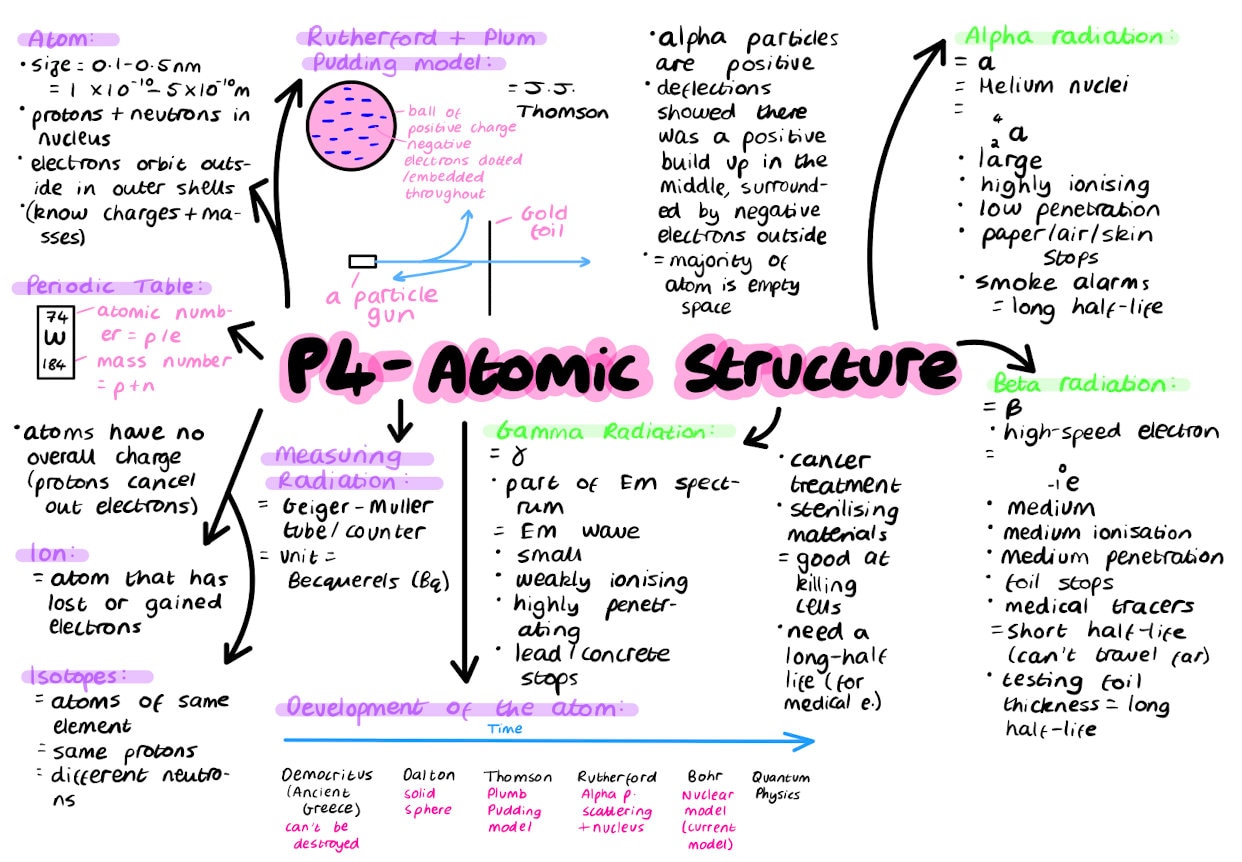 Atom:
• size = 0.1-0.5nm
= 1 ×10⁻¹⁰- 5×10⁻¹⁰m
• protons + neutrons in
nucleus
• electrons orbit outs-
ide in outer shells
• (know charges + ma-
sses)
Rutherford + Plum
Pudding model:
= J.J.
Thomson
ball of
positive charge
negative
electrons dotted
/embedded
throughout
Gold
foil
a particle
gun
• alpha particles
are positive
• deflections
showed there
was a positive
build up in the
middle, surround-
ed by negative
electrons outside
• = majority of
atom is empty
space
Alpha radiation:
= a
= Helium nuclei
=
4
2 a
• large
• highly ionising
• low penetration
• paper/air/skin
stops
• smoke alarms
= long half-life
Periodic Table:
74
W
184
atomic numb-
er = p/e
mass number
= p+n
P4- Atomic Structure
Beta radiation:
= β
• high-speed electron
=
0
-1 e
• medium
• medium ionisation
• medium penetration
• foil stops
• medical tracers
= short half-life
(can't travel far)
• testing foil
thickness = long
half-life
• atoms have no
overall charge
(protons cancel
out electrons)
Ion:
= atom that has
lost or gained
electrons
Isotopes:
= atoms of same
element
= same protons
= different neutro-
ns
Measuring
Radiation:
= Geiger-Muller
tube/counter
= unit =
Becquerels (Bq)
Gamma Radiation:
= γ
• part of Em spect-
rum
= Em wave
• small
• weakly ionising
• highly penetr-
ating
• lead/concrete
stops
• cancer
treatment
• sterilising
materials
= good at
killing
cells
• need a
long-half
life (for
medical e.)
Development of the atom:
Time
Democritus
(Ancient
Greece)
can't be
destroyed
Dalton
solid
sphere
Thomson
Plumb
Pudding
model
Rutherford
Alpha p.
scattering
+ nucleus
Bohr
Nuclear
model
(current
model)
Quantum
Physics